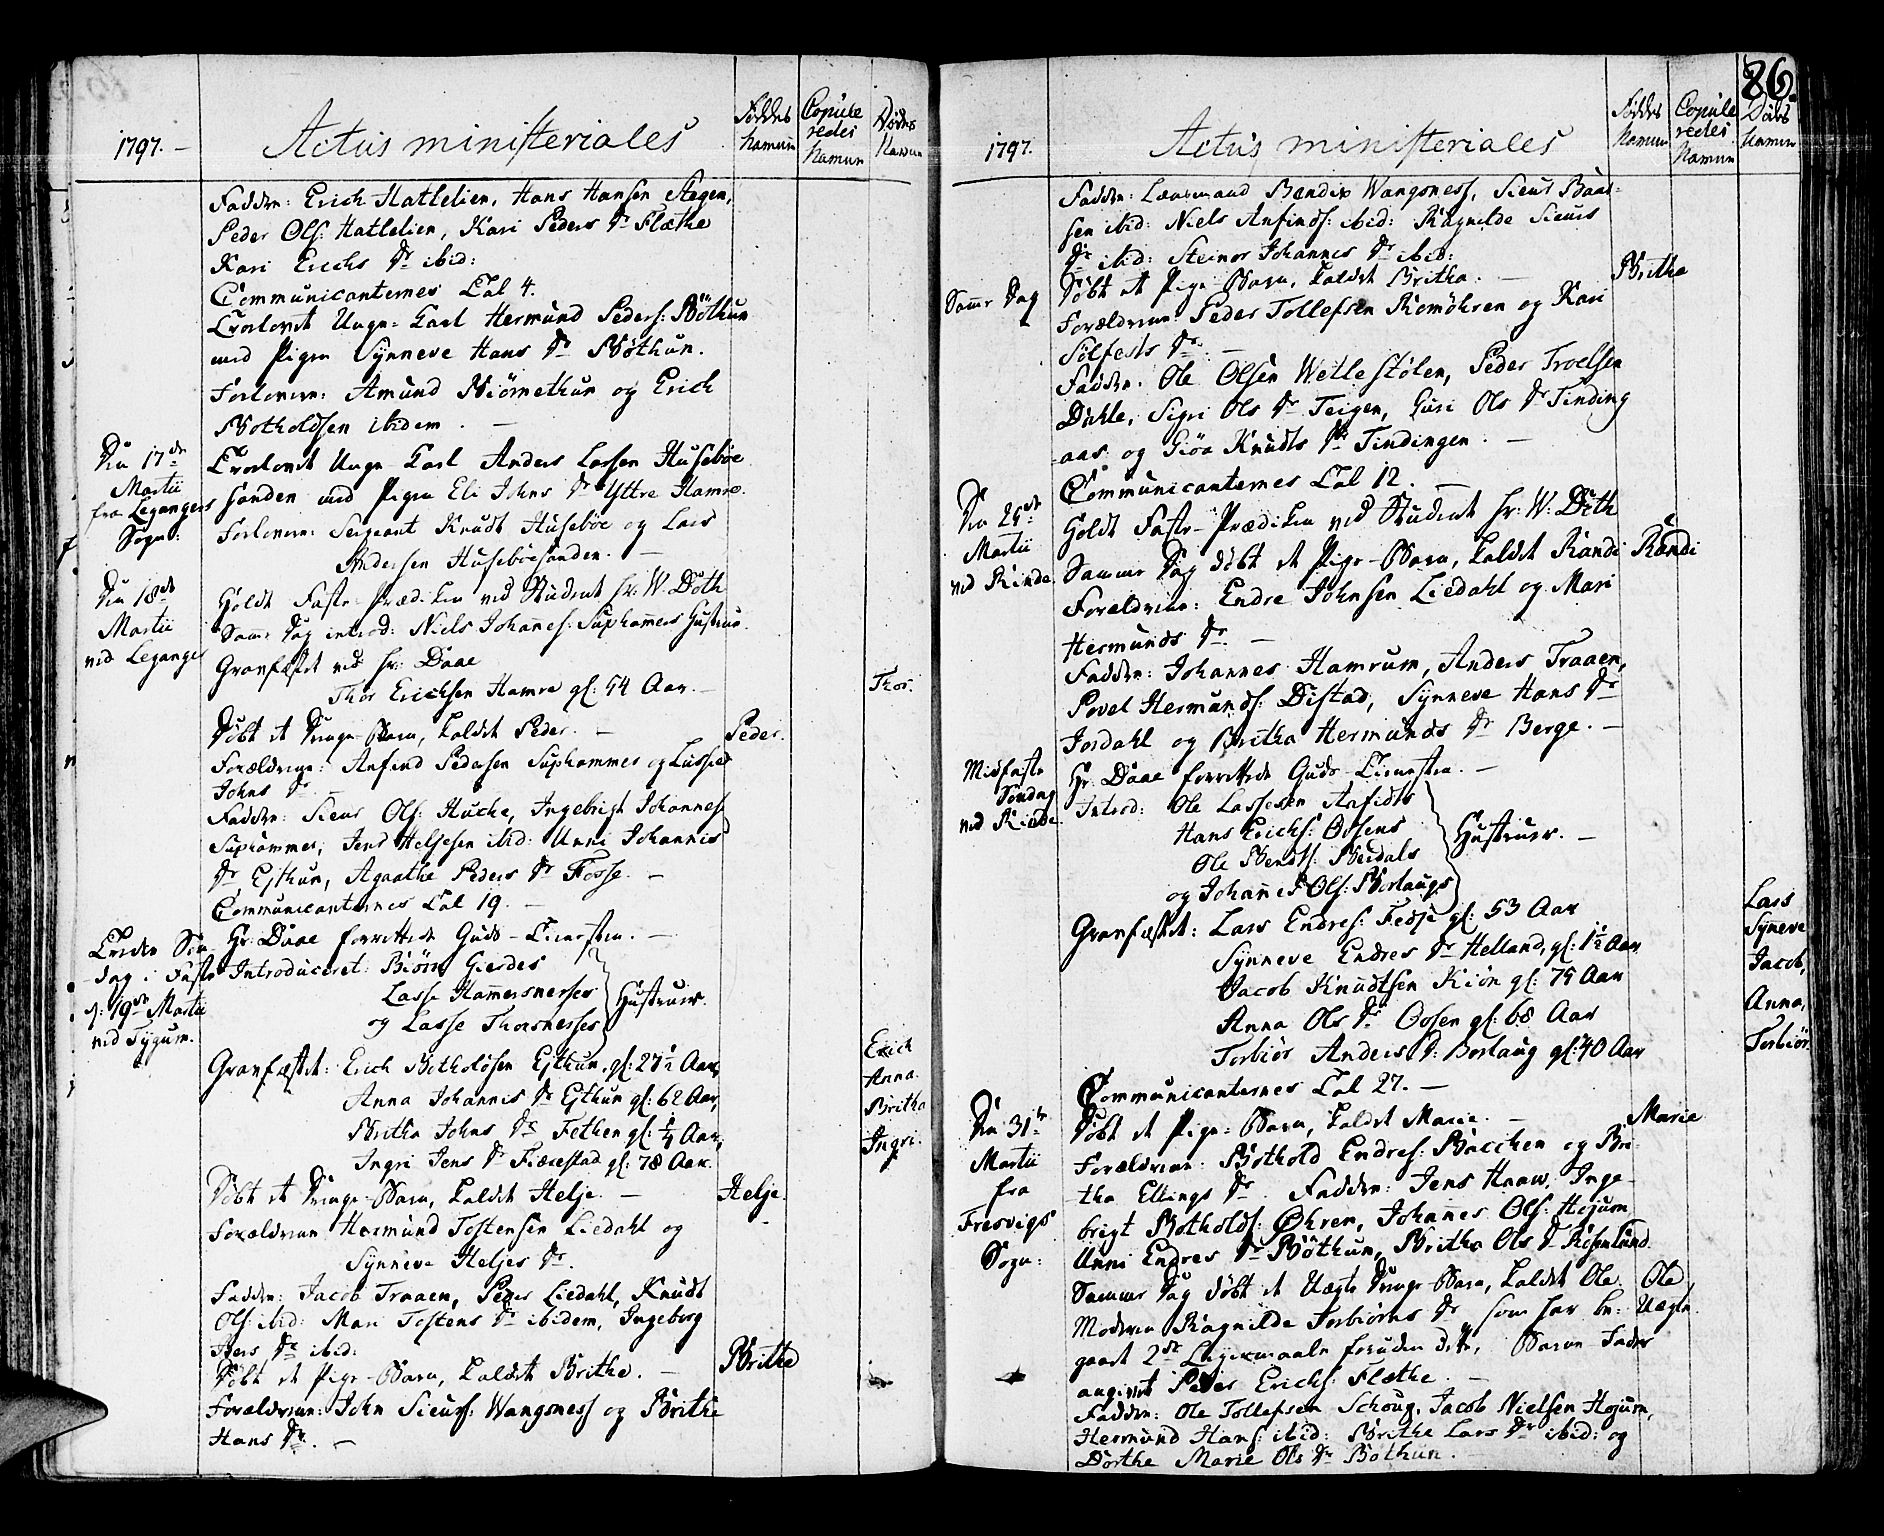 1797. –
Actus ministeriales
Føddes Navne
Copule redes Navne
Dødes Navne
Fadder: Erich Hattelien, Hans Hansen Stegen,
Peder Ols: Hattelien, Kari Peders Dr Flæthe
Kari Erichs Dr ibid:
Communicanternes Tal 4.
Trolovet Unge-Karl Hermund Peders: Bøthun
med Pigen Synneve Hans Dr Bøthun.
Forlovere: Amund Niørnethun og Erich
Botholdsen ibidem. –
Den 17de Martii fra Leganger Sogn:
Trolovet Unge Karl Anders Larsen Husebøe
sanden med Pigen Eli Johns Dr Yttre Hamre.
Forlovere: Sergeant Knudt Husebøe og Lars
Andersen Husebøesanden. –
Den 18de Martii ved Leganger
Holdt Faste-Prædiken ved Student Hr. W. Døth
Samme Dag introd: Niels Johannes: Suphammers Hustrue.
Gravfæstet ved Hr. Daae
Thor Erichsen Hamre gl: 54 Aar. –
Thor.
Døbt et Drenge-Barn, kaldet Peder. –
Peder.
Forældrene: Anfind Pedersen Suphammer og Lussie
Johns Dr –
Fadder: Siur Ols: Hucke, Ingebrigt Johannes
Suphammer, Jens Heljesen ibid: Unni Johannis
Dr Ejthun, Agaathe Peders Dr Fosse. –
Communicanternes Tal 19. –
Tredie Søndag i Faste d: 19de Martii ved Tygum.
Hr. Daae forrettede Guds-Tienesten. –
Introduceret: Biørn Gierdes
Lasse Hamersnesses
og Lasse Thorsnesses
Hustruer.
Gravfæstet: Erich Botholdsen Ejthun, gl: 27½ Aar,
Erich
Anna Johannis Dr Ejthun gl: 62 Aar,
Anna.
Britha Johns Dr Fethen gl: ¼ Aar,
Britha
Ingri Jens Dr Fiærestad gl: 78 Aar.
Ingri.
Døbt et Drenge-Barn, kaldet Helje. –
Helje.
Forældrene Hermund Tostensen Liedahl og
Synneve Heljes Dr.
Fadder: Jacob Traaen, Peder Liedahl, Knudt
Ols: ibid: Mari Tostens Dr ibidem, Ingeborg
Ivers Dr ibid:
Døbt et Pige-Barn, kaldet Brithe. –
Brithe
Forældrene: John Siurs: Wangsness og Brithe
Hans Dr. –
86.
1797.
Actus ministeriales
Føddes Navne
Copule redes Navne
Dødes Navne
Fadder: Lensmand Bendix Wangsness, Siur Baar-
sen ibid: Niels Anfinds: ibid: Ragnilde Siurs
Dr ibid: Steinor Johannis Dr ibid:
Samme Dag
Døbt et Pige Barn, kaldet Britha. –
Britha
Forældrene: Peder Tollefsen Romøhren og Kari
Sølfests Dr. –
Fadder: Ole Olsen Wetlestølen, Peder Troelsen
Dahle, Sigri Ols Dr Teigen, Guri Ols Dr Tinding
aas og Giøa Knudts Dr Tindingen. –
Communicanternes Tal 12. –
Den 25de Martii ved Rinde
Holdt Faste-Prædiken ved Student Hr: W: Døth
Samme Dag døbt et Pige-Barn, kaldet Randi
Randi
Forældrene: Endre Johnsen Liedahl og Mari
Hermunds Dr. –
Fadder: Johannes Hamrum, Anders Traaen,
Povel Hermunds: Distad, Synneve Hans Dr
Jordahl og Britha Hermunds Dr Berge. –
Midfaste Søndag ved Rinde
Hr. Daae forrettede Guds-Tienesten. –
Introd: Ole Lassesen Anfidts
Hans Erichs: Ovsens
Ole Bends: Beidals
og Johannes Ols: Borlaugs
Hustruer. –
Gravfæstet: Lars Endres: Fedje gl: 53 Aar
Lars
Synneve Endres Dr Helland, gl: 1½ Aar
Syneve
Jacob Knudtsen Kiøn gl: 75 Aar
Jacob,
Anna Ols Dr Ovsen gl: 68 Aar
Anna,
Torbiør Anders D: Borlaug gl: 40 Aar
Torbiør.
Communicanternes Tal 27. –
Den 31te Martii fra Fresvigs Sogn:
Døbt et Pige-Barn, kaldet Marie. –
Marie
Forældrene: Bothold Endres: Bacchen og Bri-
tha Ellings Dr. Fadder: Jens Haaw, Inge-
brigt Botholds: Øhren, Johannes Ols: Hojum
Unni Endres Dr Bøthun, Britha Ols Dr Rosenlund.
Samme Dag døbt et Uægte Drenge-Barn, kaldet Ole
Ole Uægte.
Moderen Ragnilde Torbiørns Dr som har be-
gaaet 2de Leyermaale foruden dette, Barne-Fader
angivet Peder Erichs: Flæthe. –
Fadder: Ole Tollefsen Schoug, Jacob Nielsen Hojum,
Hermund Hans: ibid: Brithe Lars Dr ibid: og
Dorthe Marie Ols Dr Bøthun. –